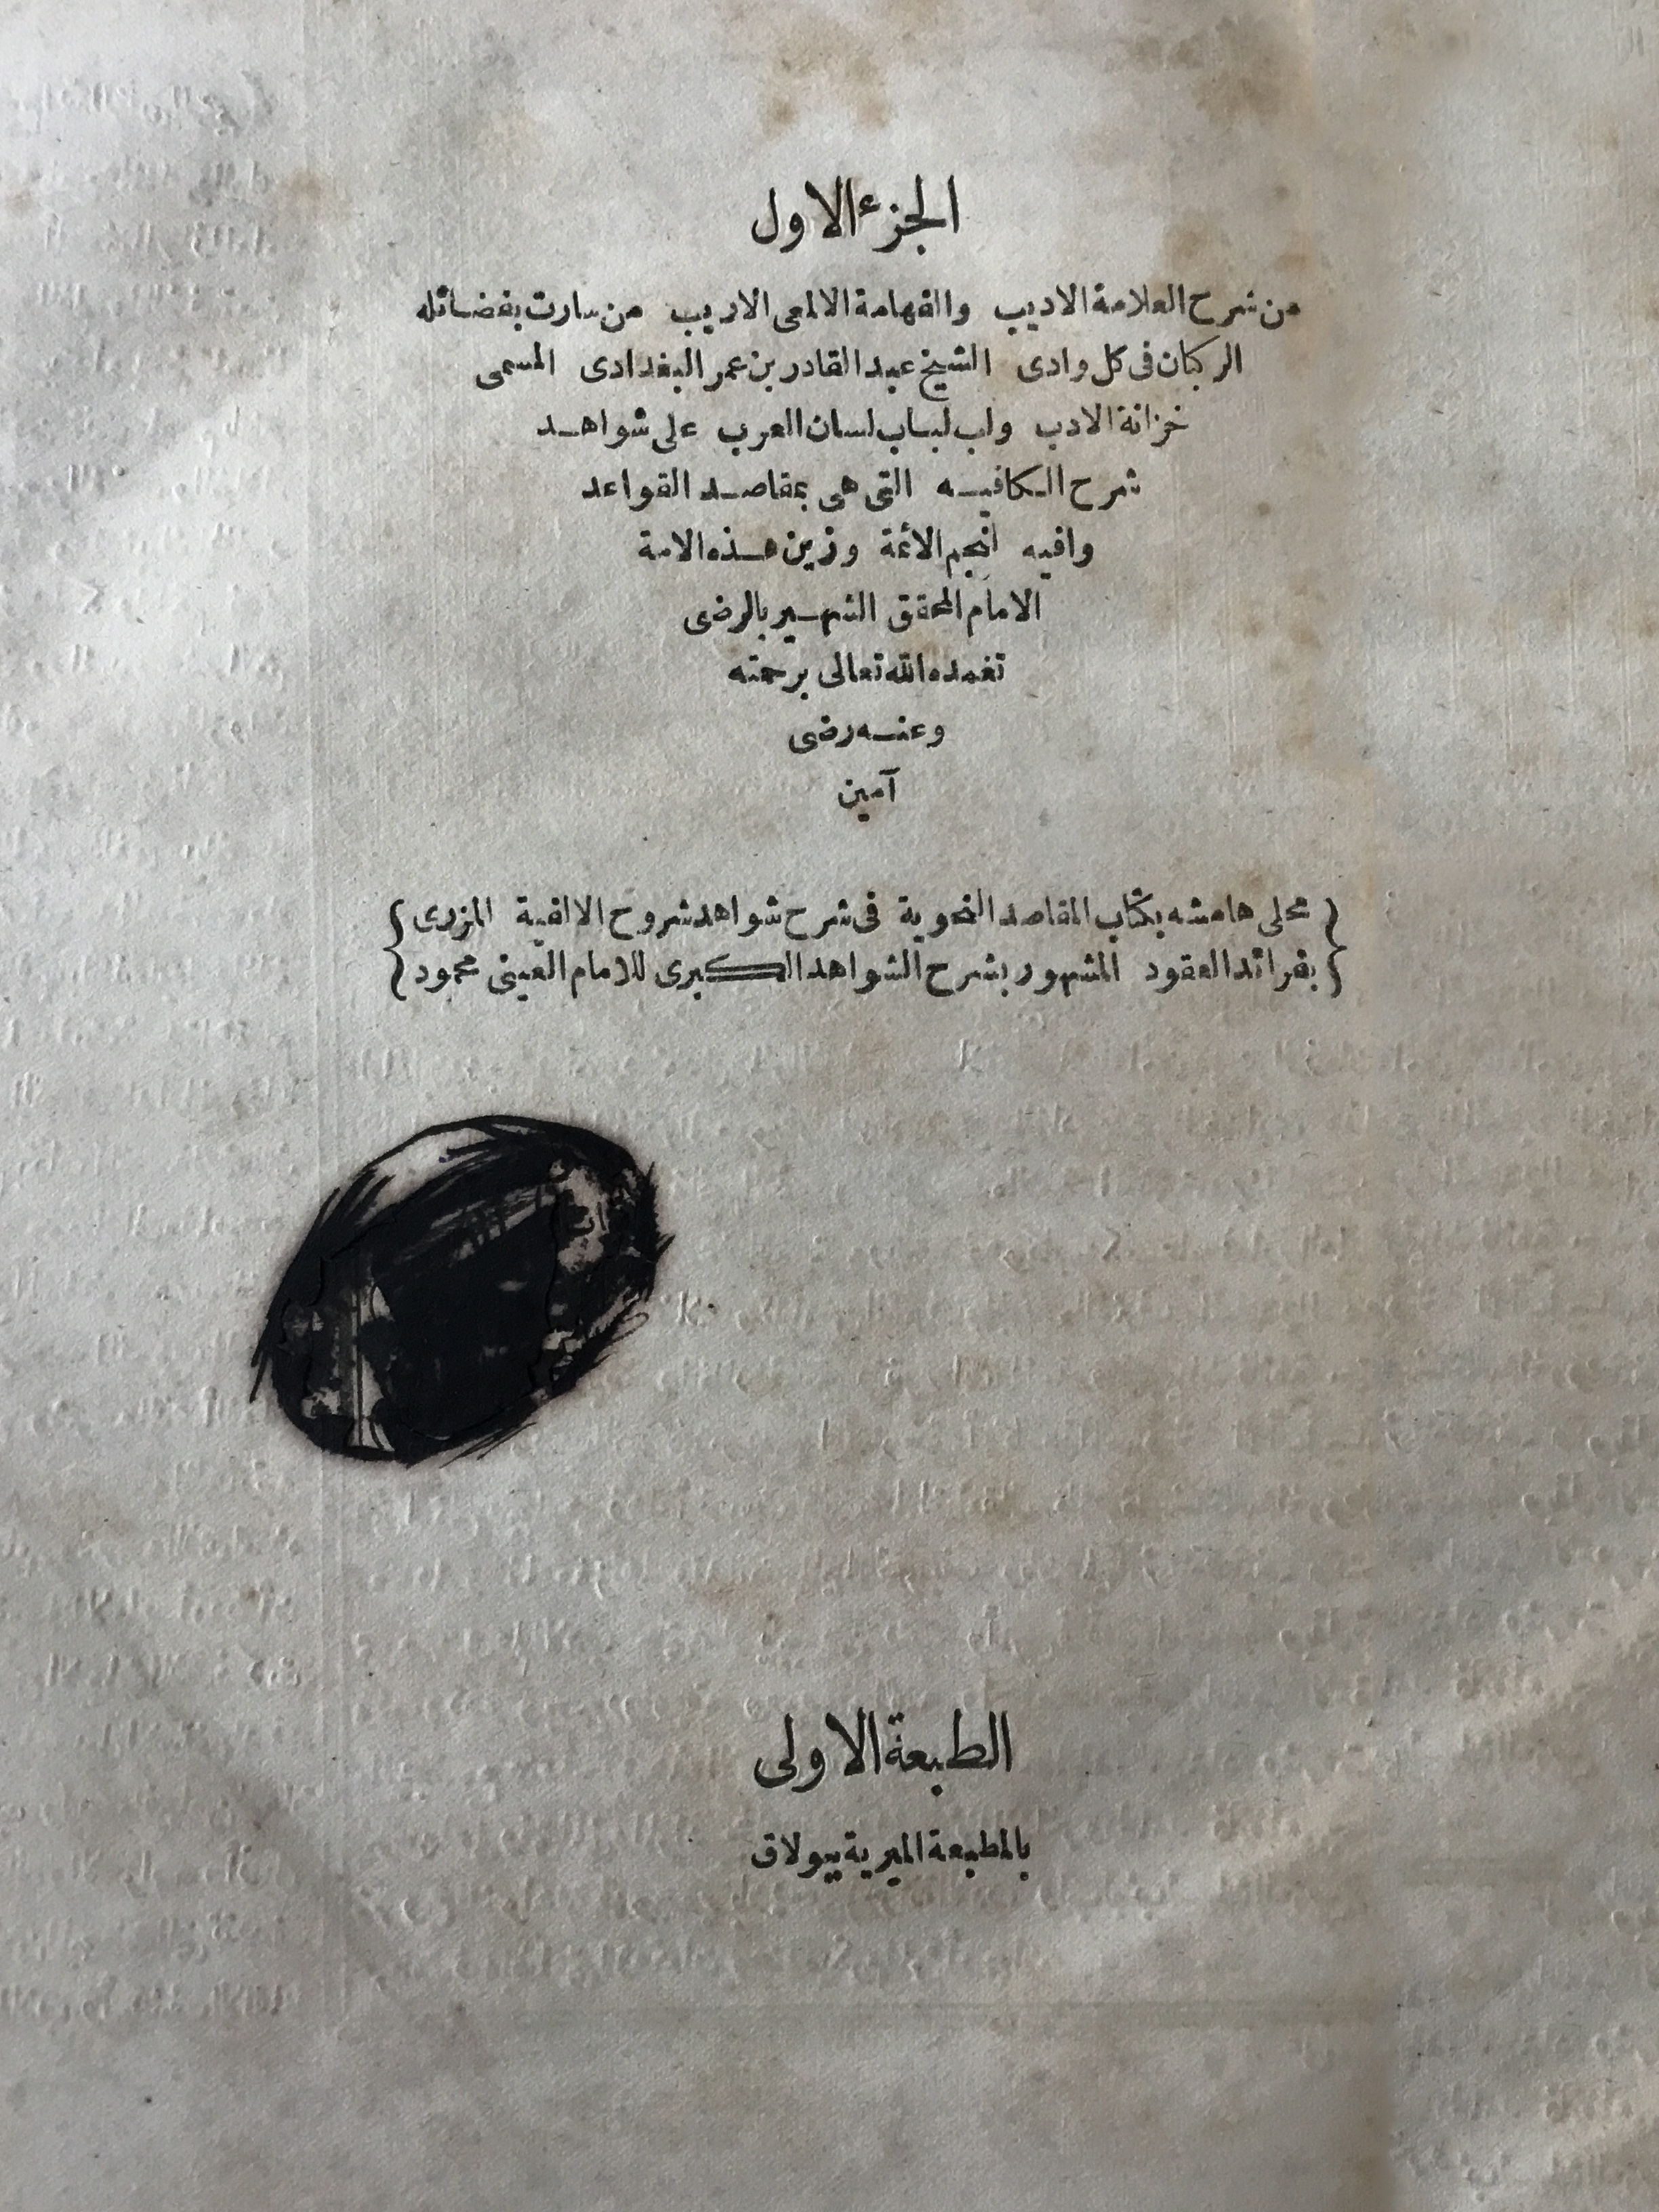 الجزء الاول
من شرح العلامة الاديب والفهامة الالمعى الاريب من سارت بفضائله
الركبان فى كل وادى الشيخ عبد القادر بن عمر البغدادى المسمى
خزانة الادب ولب لباب لسان العرب على شواهد
شرح الكافيه التى هى بمقاصد القواعد
وافيه لنجم الأئمة وزين هذه الامة
الامام المحقق الشهير بالرضى
تغمده الله تعالى برحمته
وعنه رضى
آمين
﴿محلى هامشه بكتاب المقاصد النحوية فى شرح شواهد شروح الالفية المزرى﴾
﴿بفرائد العقود المشهور بشرح الشواهد الكبرى للامام العينى محمود﴾
الطبعة الاولى
بالمطبعة الميرية ببولاق